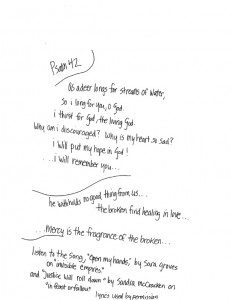 Psalm 42
As a deer longs for streams of water,
so i long for you, O God.
i thirst for God, the living God.
Why am i discouraged? Why is my heart so sad?
i will put my hope in God!
...i will remember you...
he withholds no good thing from us...
the broken find healing in love...
...Mercy is the fragrance of the broken...
listen to the song, "Open my hands," by sara groves
on "invisible empires"
and "Justice will roll down" by Sandra McCracken on
"in feast or fallow"
lyrics used by permission